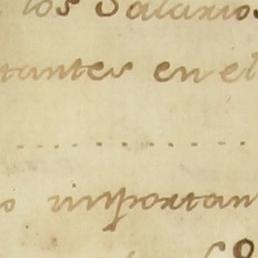 los Salarios
tantes en el
importan